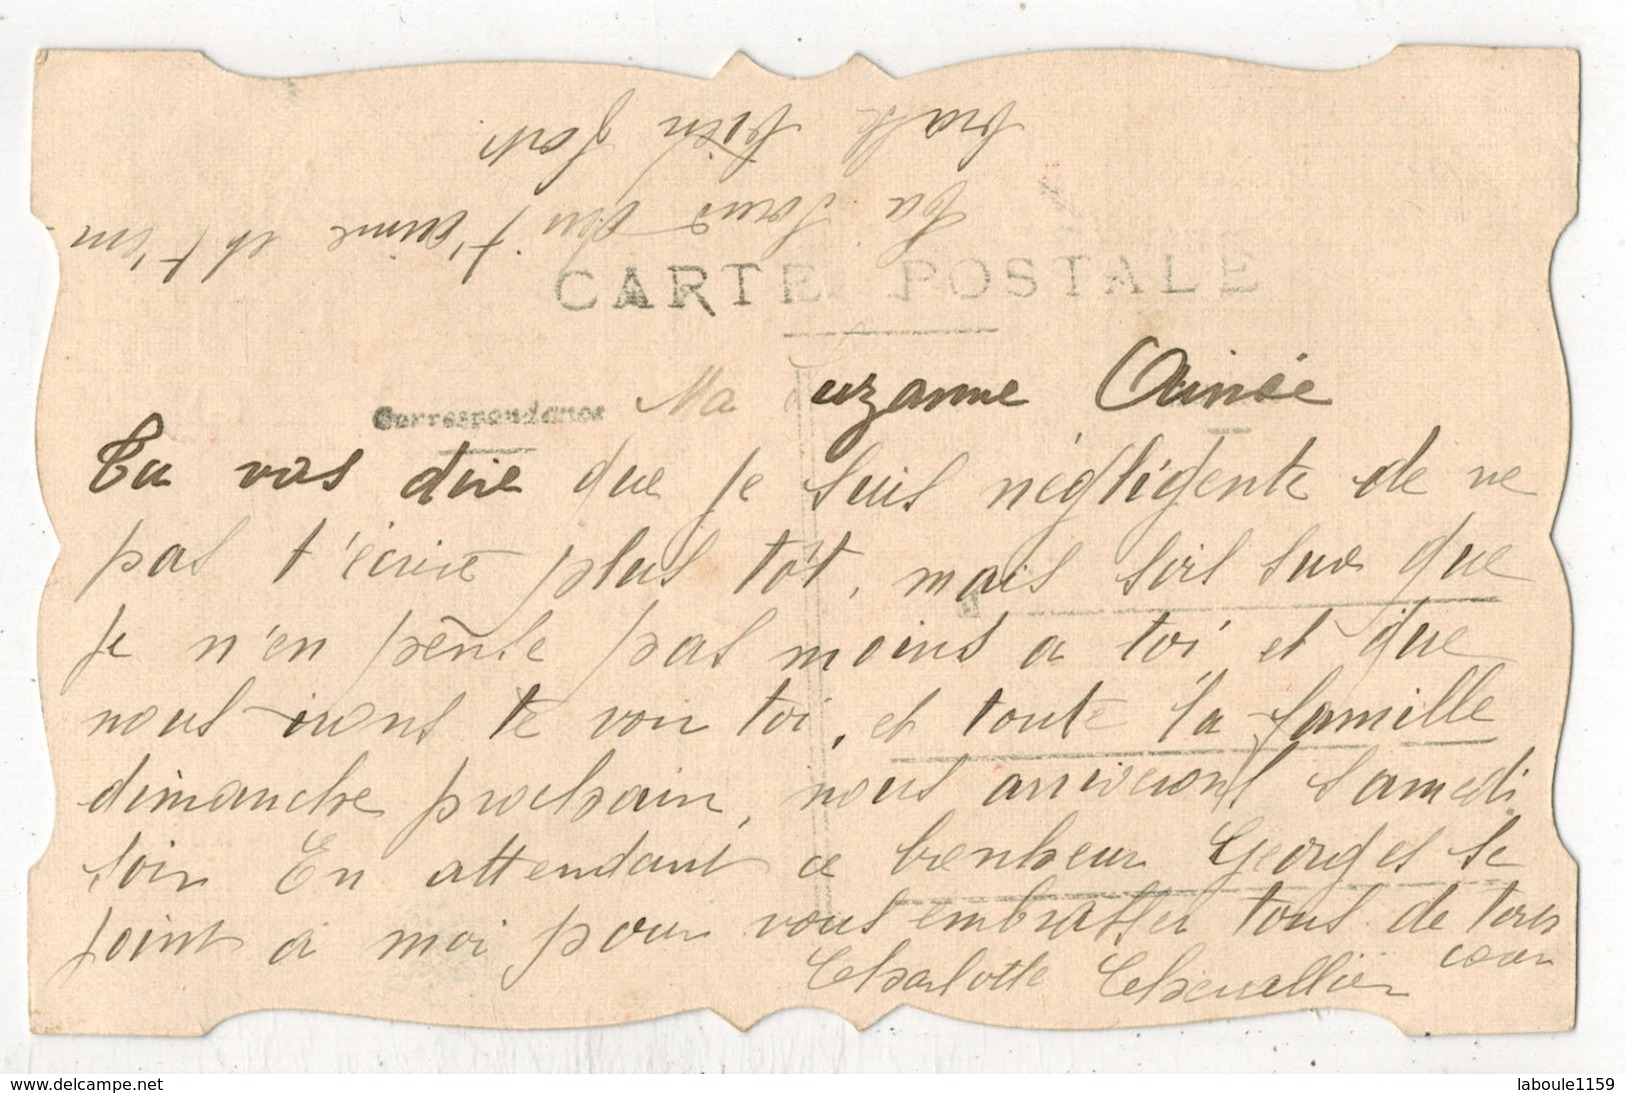 CARTE POSTALE
Correspondance
Ma Suzanne Aimée
Tu vas dire que je suis négligente de ne
pas t'écrire plus tôt, mais sois sur que
je n'en pense pas moins a toi et que
nous irons te voir toi, et toute la famille
dimanche prochain, nous arriverons samedi
soir En attendant ce bonheur Georget se
joint à moi pour vous embrasser tous de tous
coeur
Charlotte Chevallier
Ta soeur qui t'aime et t'em-
brasse bien fort
laboule1159
Delcampe.net